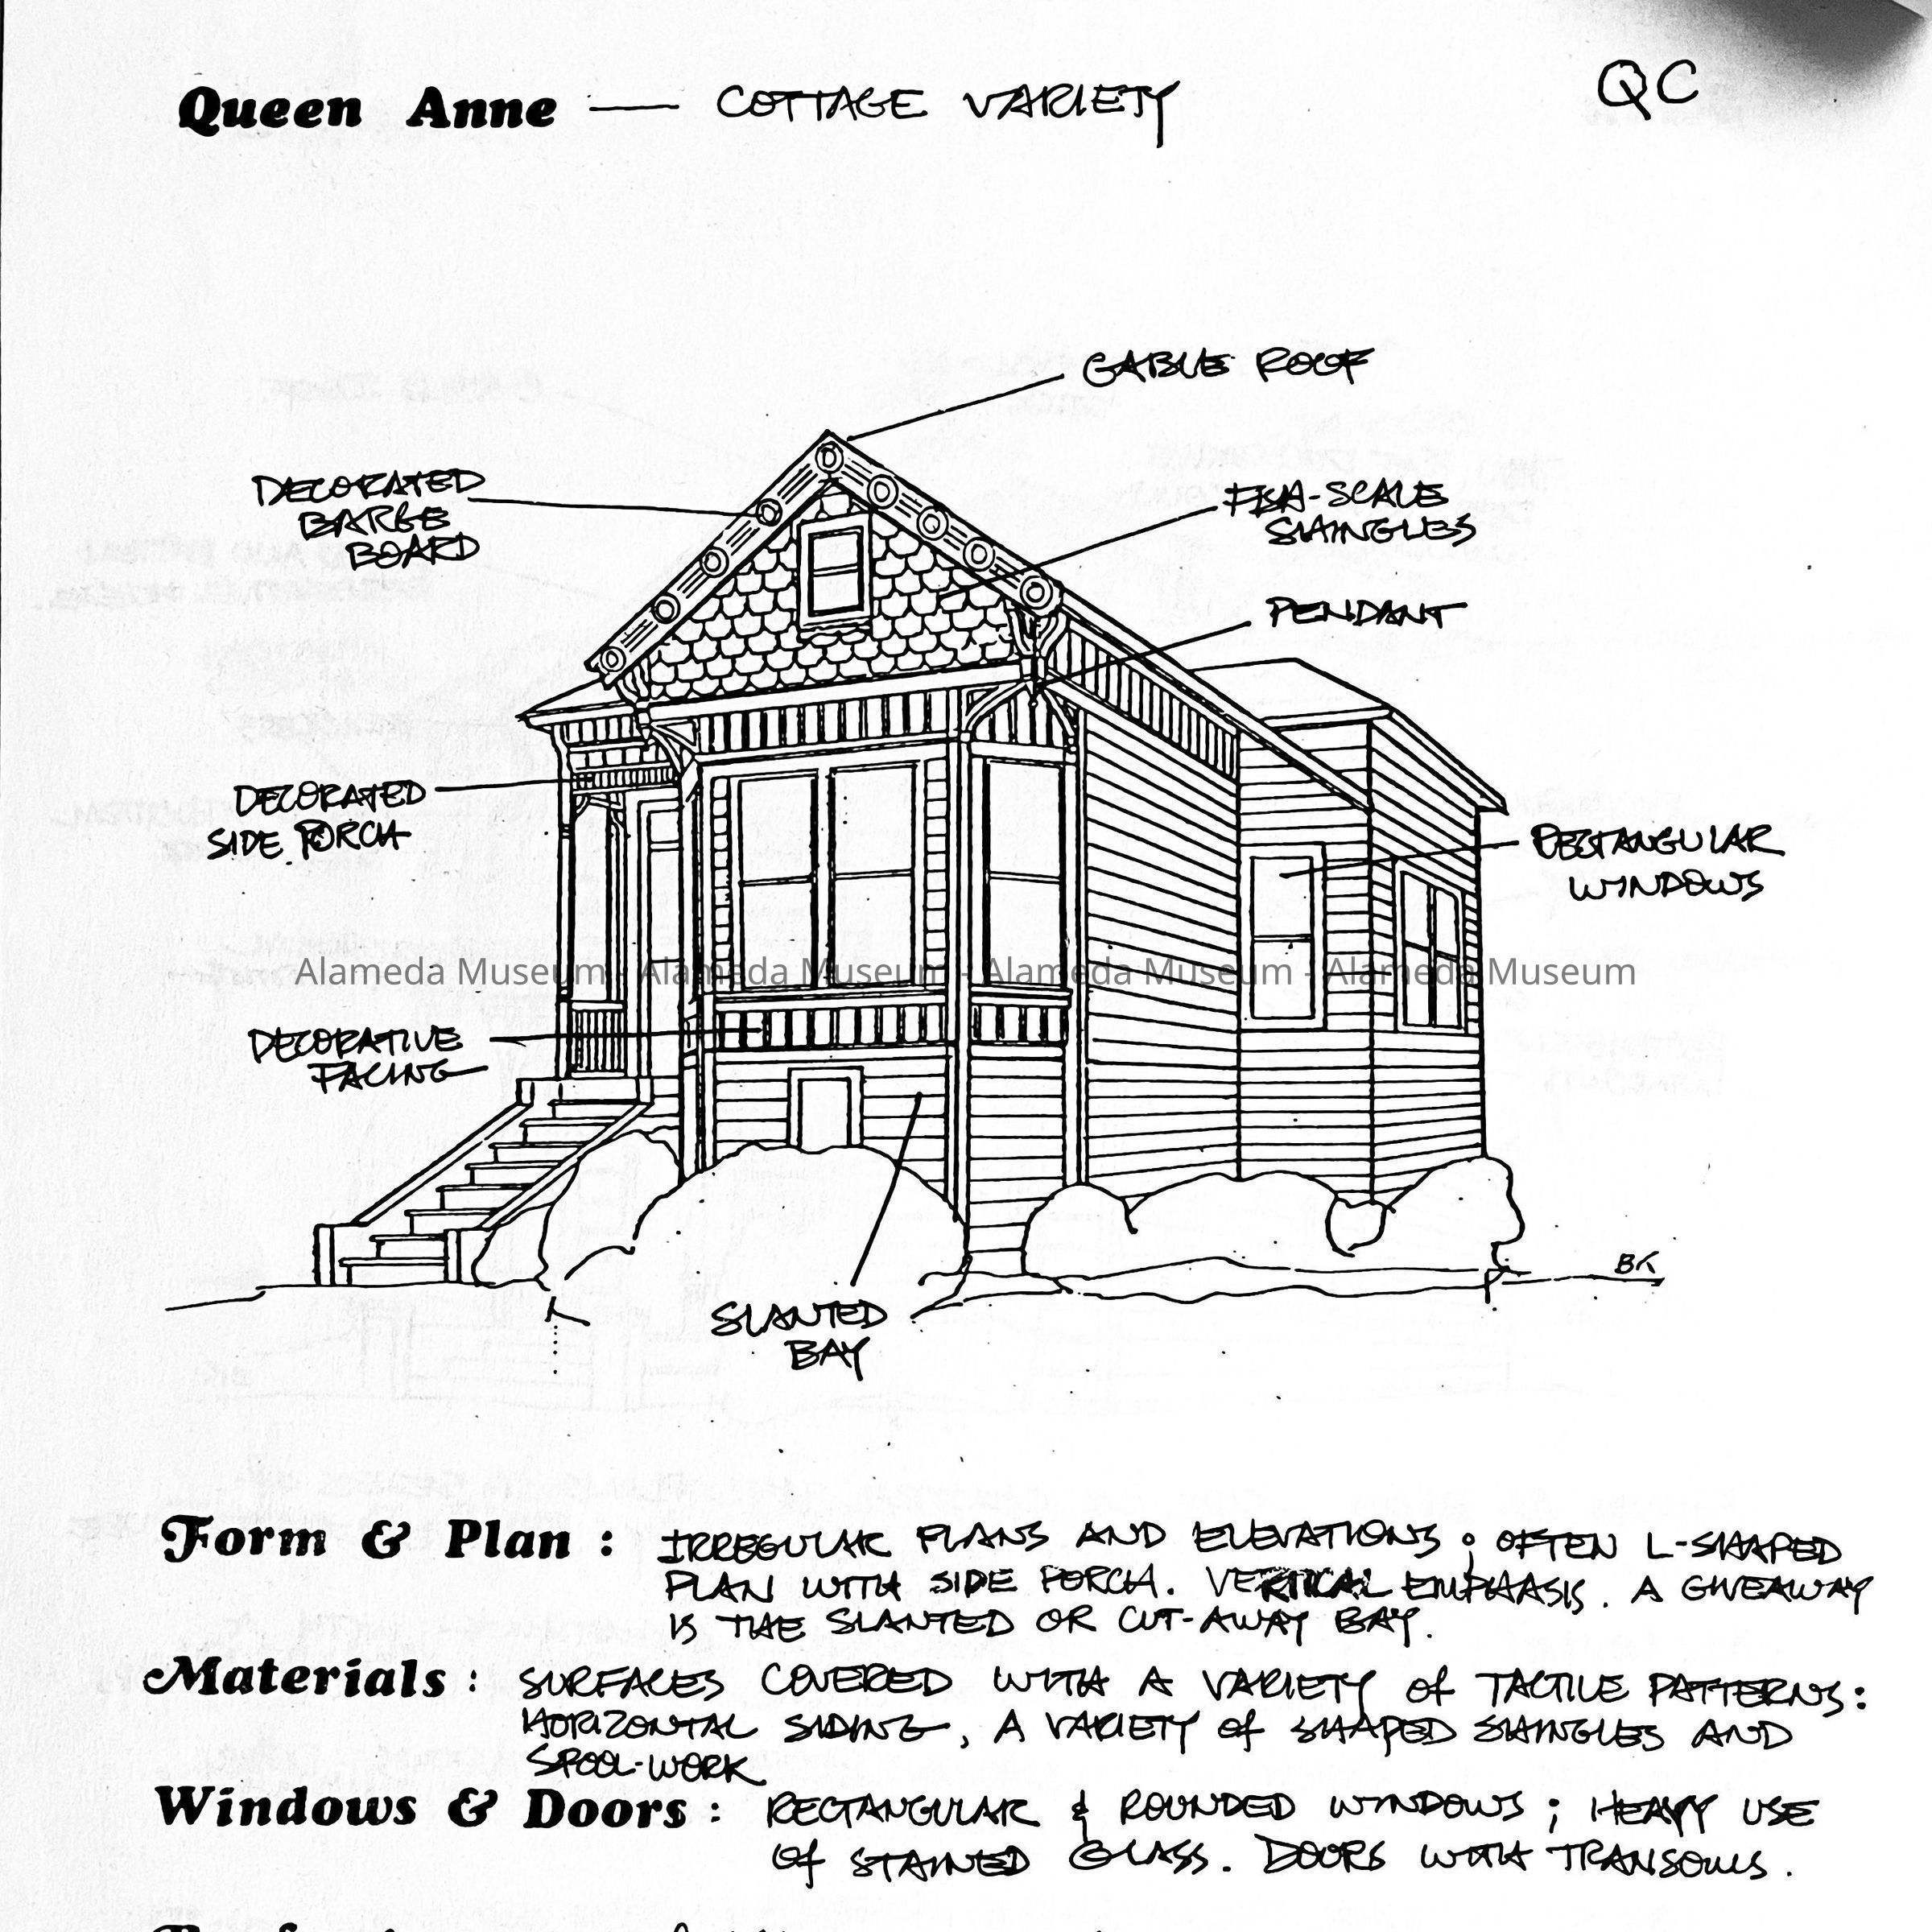 Queen Anne — COTTAGE VARIETY
QC
GABLE ROOF
DECORATED
BARGE
BOARD
FISH-SCALE
SHINGLES
PENDANT
DECORATED
SIDE PORCH
RECTANGULAR
WINDOWS
Alameda Museum - Alameda Museum - Alameda Museum - Alameda Museum
DECORATIVE
FACING
BK
SLANTED
BAY
Form & Plan : IRREGULAR PLANS AND ELEVATIONS ; OFTEN L-SHAPED
PLAN WITH SIDE PORCH. VERTICAL EMPHASIS. A GIVEAWAY
IS THE SLANTED OR CUT-AWAY BAY.
Materials : SURFACES COVERED WITH A VARIETY of TACTILE PATTERNS:
HORIZONTAL SIDING, A VARIETY of SHAPED SHINGLES AND
SPOOL-WORK
Windows & Doors : RECTANGULAR & ROUNDED WINDOWS ; HEAVY USE
Of STAINED GLASS. DOORS WITH TRANSOMS.